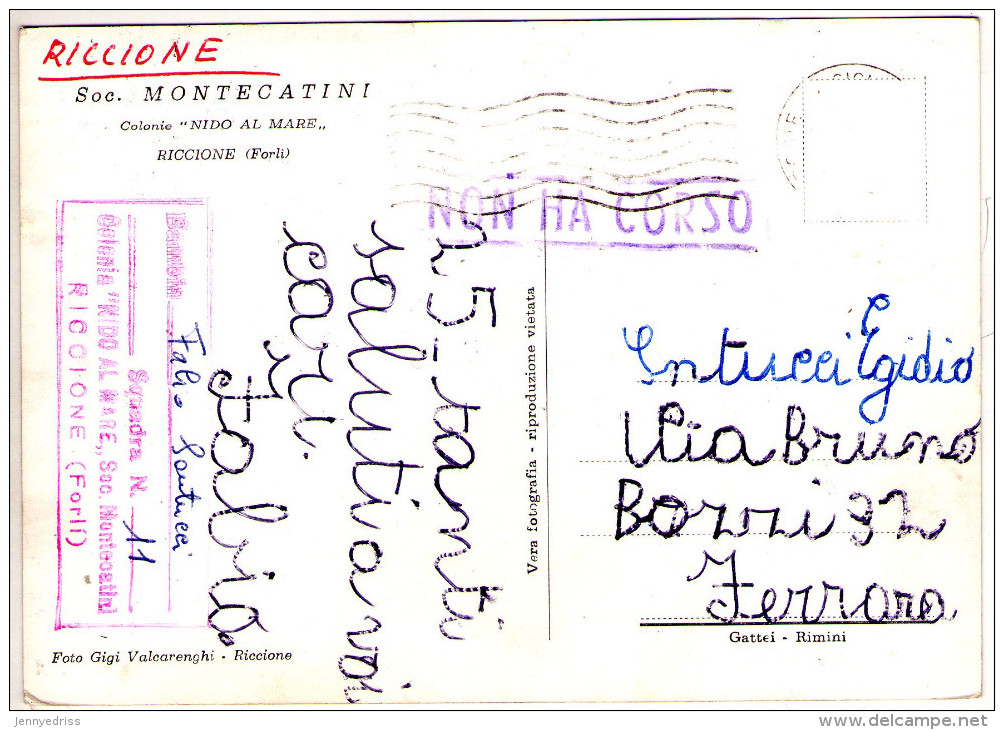 RICCIONE
Soc. MONTECATINI
Colonie "NIDO AL MARE„
RICCIONE (Forlì)
NON HA CORSO
Bambin
Falio Santucci
Squadra N. 11
Colonia "NIDO AL MARE„ Soc. Montecatini
RICCIONE (Forlì)
25-tanti
saluti a voi
cari.
Falio
Vera fotografia - riproduzione vietata
Santucci Egidio
Via Bruno
Bozzi 92
Ferrara
Gattei - Rimini
Foto Gigi Valcarenghi - Riccione
jennydriss
delcampe.net